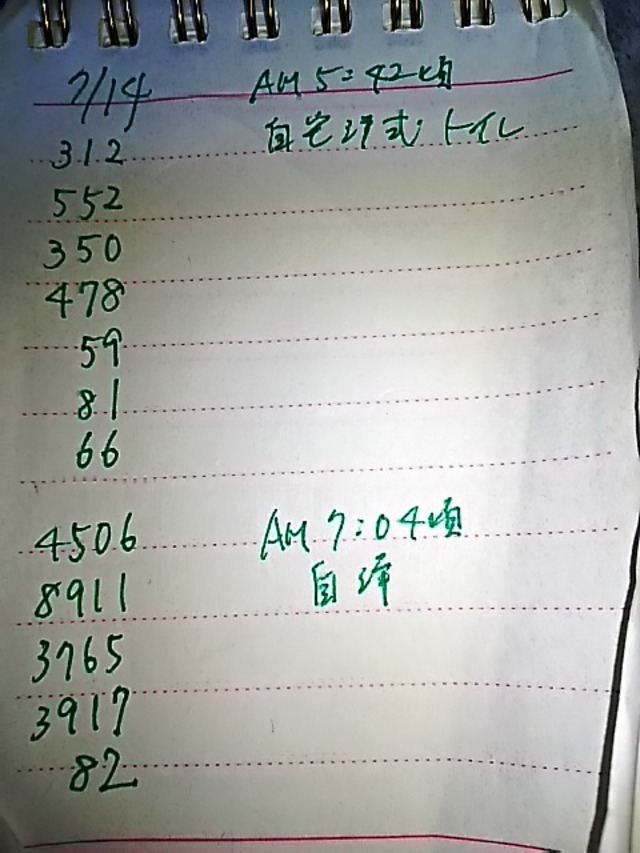 7/14 AM 5:42頃
312 自宅洋式トイレ
552
350
478
59
81
66
4506 AM 7:04頃
8911 自洋
3765
3917
82